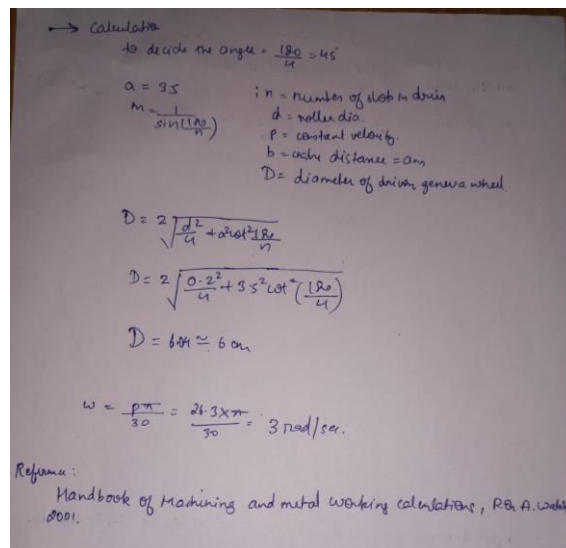 → Calculation
to decide the angle = 180/4 = 45
a = 35
m = 1/sin(180/n)
; n = number of slots in driven
d = roller dia.
p = constant velocity.
b = centre distance = am
D = diameter of driven geneva wheel.
D = 2√(d²/4 + a²cot² 180/n)
D = 2√(0.2²/4 + 35²cot²(180/4))
D = ≃ 6 cm
ω = pπ/30 = 26.3×π/30 = 3 rad/sec.
Reference:
Handbook of Machining and metal working calculations, R A.
2001.